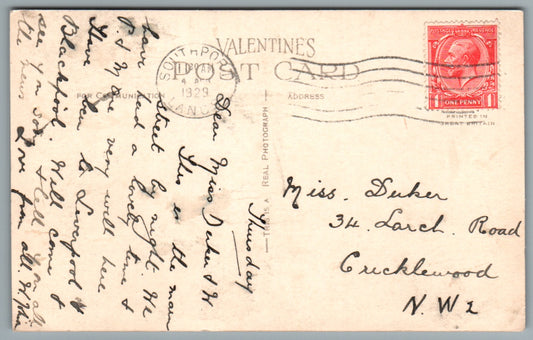 VALENTINES
POST CARD
FOR COMMUNICATION
ADDRESS
SOUTHPORT
1929
LANCS
ONE PENNY
PRINTED IN
GREAT BRITAIN
THIS IS A REAL PHOTOGRAPH
Thursday
Dear Miss Duker & W
This is the main
street by night. We
have had a lovely time &
P.S. We are very well here
I have been to Liverpool &
Blackpool. Will come &
see you soon & tell you all
the news Love from all.
Miss. Duker
34. Larch. Road
Cricklewood
N. W2